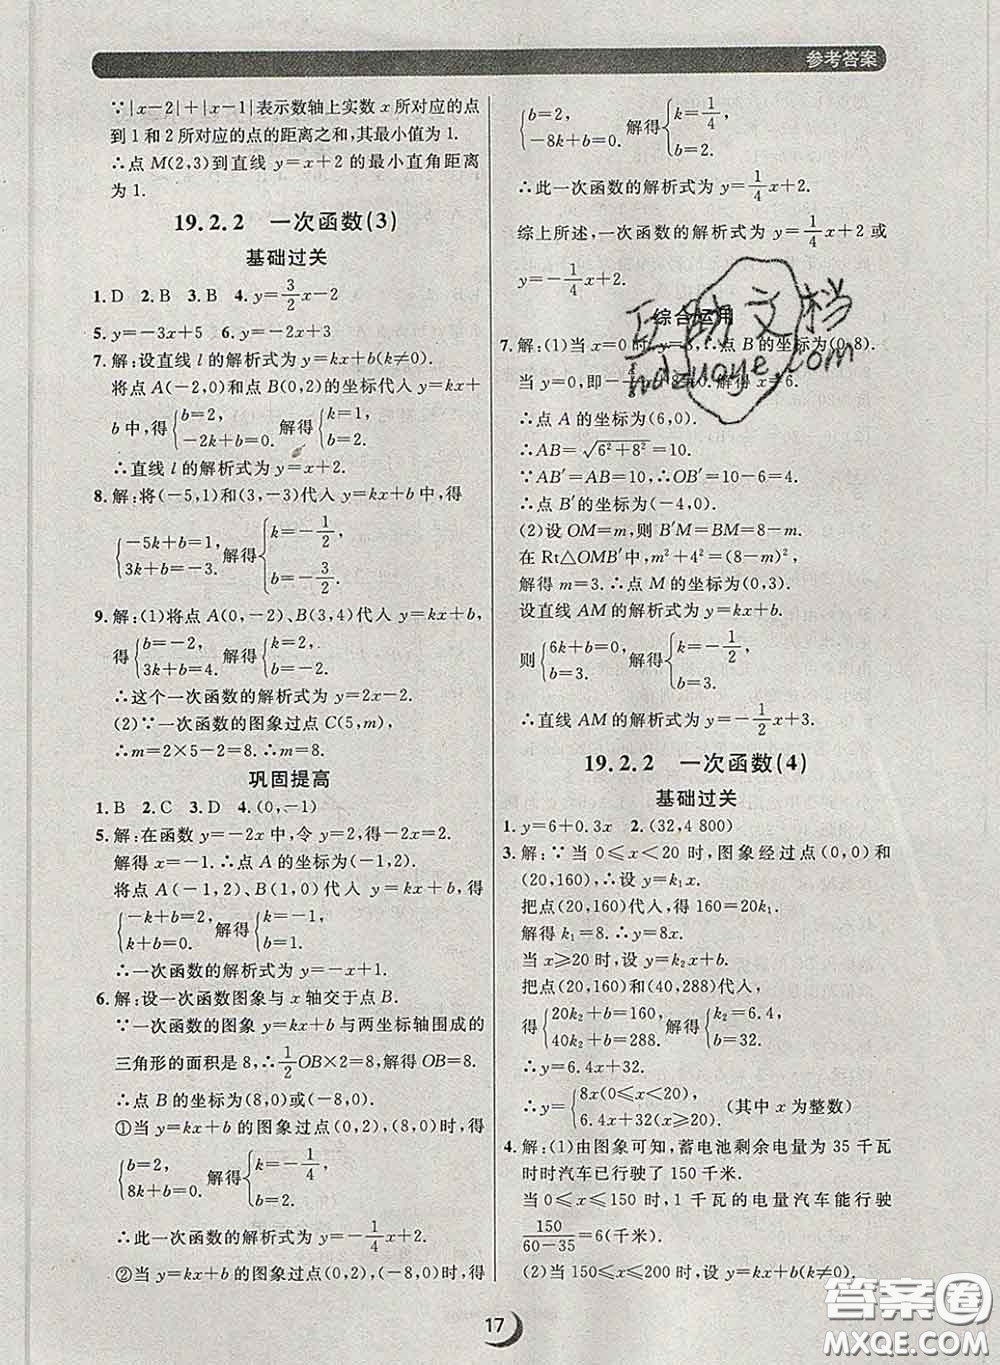 参考答案
∵|x−2|+|x−1|表示数轴上实数 x 所对应的点
到 1 和 2 所对应的点的距离之和,其最小值为 1.
∴点 M(2,3)到直线 y=x+2 的最小直角距离
为 1.
19.2.2 一次函数(3)
基础过关
1.D 2.B 3.B 4.y=3/2x−2
5.y=−3x+5 6.y=−2x+3
7.解:设直线 l 的解析式为 y=kx+b(k≠0).
将点 A(−2,0)和点 B(0,2)的坐标代入 y=kx+
b 中,得{b=2, −2k+b=0. 解得{k=1, b=2.
∴直线 l 的解析式为 y=x+2.
8.解:将(−5,1)和(3,−3)代入 y=kx+b 中,得
{−5k+b=1, 3k+b=−3. 解得{k=−1/2, b=−3/2.
9.解:(1)将点 A(0,−2)、B(3,4)代入 y=kx+b,
得{b=−2, 3k+b=4. 解得{k=2, b=−2.
∴这个一次函数的解析式为 y=2x−2.
(2)∵一次函数的图象过点 C(5,m),
∴m=2×5−2=8.∴m=8.
巩固提高
1.B 2.C 3.D 4.(0,−1)
5.解:在函数 y=−2x 中,令 y=2,得−2x=2.
解得 x=−1.∴点 A 的坐标为(−1,2).
将点 A(−1,2)、B(1,0)代入 y=kx+b,得
{−k+b=2, k+b=0. 解得{k=−1, b=1.
∴一次函数的解析式为 y=−x+1.
6.解:设一次函数图象与 x 轴交于点 B.
∵一次函数的图象 y=kx+b 与两坐标轴围成的
三角形的面积是 8,∴1/2OB×2=8,解得 OB=8.
∴点 B 的坐标为(8,0)或(−8,0).
①当 y=kx+b 的图象过点(0,2),(8,0)时,得
{b=2, 8k+b=0. 解得{k=−1/4, b=2.
∴此一次函数的解析式为 y=−1/4x+2.
②当 y=kx+b 的图象过点(0,2),(−8,0)时,得
{b=2, −8k+b=0. 解得{k=1/4, b=2.
∴此一次函数的解析式为 y=1/4x+2.
综上所述,一次函数的解析式为 y=1/4x+2 或
y=−1/4x+2.
综合运用
7.解:(1)当 x=0 时,y=8,∴点 B 的坐标为(0,8).
当 y=0,即− x+8=0.解得 x=6.
∴点 A 的坐标为(6,0).
∴AB=√(6²+8²)=10.
∵AB′=AB=10,∴OB′=10−6=4.
∴点 B′的坐标为(−4,0).
(2)设 OM=m,则 B′M=BM=8−m.
在 Rt△OMB′中,m²+4²=(8−m)²,
解得 m=3.∴点 M 的坐标为(0,3).
设直线 AM 的解析式为 y=kx+b.
则{6k+b=0, b=3. 解得{k=−1/2, b=3.
∴直线 AM 的解析式为 y=−1/2x+3.
19.2.2 一次函数(4)
基础过关
1.y=6+0.3x 2.(32,4 800)
3.解:∵当 0≤x<20 时,图象经过点(0,0)和
(20,160),∴设 y=k₁x.
把点(20,160)代入,得 160=20k₁.
解得 k₁=8.∴y=8x.
当 x≥20 时,设 y=k₂x+b.
把点(20,160)和(40,288)代入,
得{20k₂+b=160, 40k₂+b=288. 解得{k₂=6.4, b=32.
∴y=6.4x+32.
∴y={8x(0≤x<20) 6.4x+32(x≥20). (其中 x 为整数)
4.解:(1)由图象可知,蓄电池剩余电量为 35 千瓦
时时汽车已行驶了 150 千米.
当 0≤x≤150 时,1 千瓦的电量汽车能行驶
150/(60−35)=6(千米).
(2)当 150≤x≤200 时,设 y=kx+b(k≠0),
17
互助文档
hdzuoye.com
答案圈
MXQE.COM